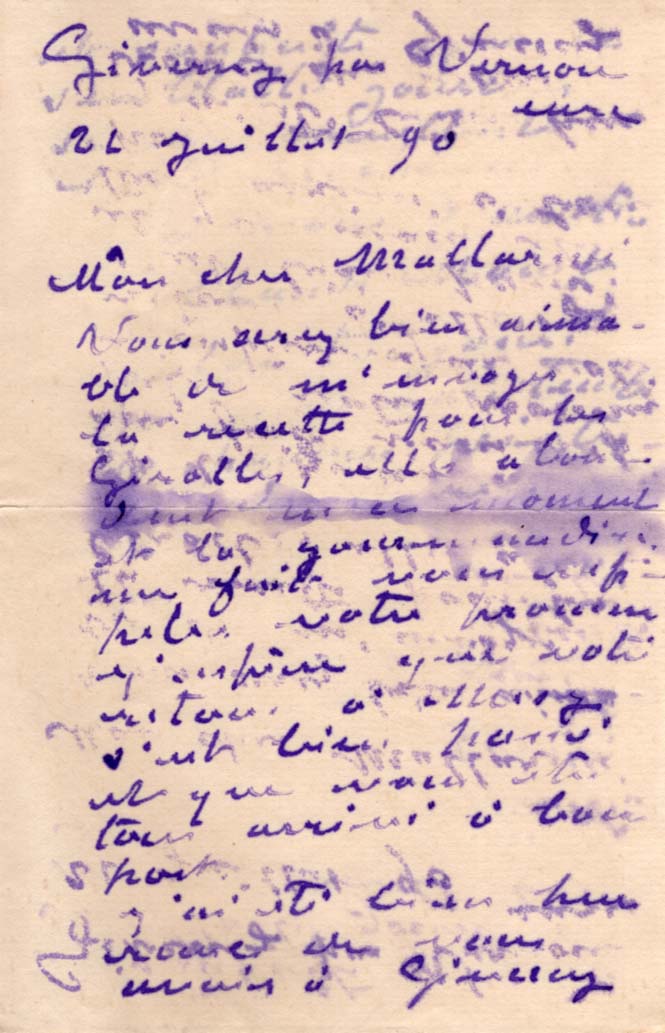 Giverny par Vernon
eure
21 juillet 90
Mon cher Mallarmé
Vous serez bien aima-
ble de m'envoyer
la recette pour les
Girolles, elles abon-
dent en ce moment
et la gourmandise
me fait vous rap-
peler votre promesse
j'espère que votre
retour à
s'est bien passé
et que vous êtes
tous arrivés à bon
port.
j'ai été bien heu
reux de vous
avoir à Giverny